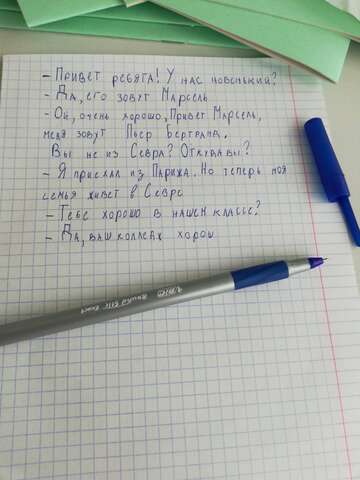 - Привет ребята! У нас новенький?
- Да, его зовут Марсель
- Ой, очень хорошо, Привет Марсель,
меня зовут Пьер Бертранд.
Вы не из Севра? Откуда вы?
- Я приехал из Парижа. Но теперь моя
семья живет в Севре
- Тебе хорошо в нашем классе?
- Да, ваш коллеж хорош